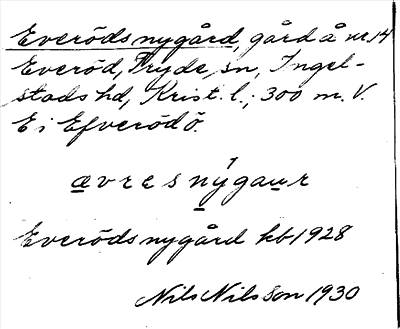 Everöds nygård, gård å nr. 14
Everöd, Tryde, sn, Ingel-
stads hd, Krist. l.; 300 m. V.
E i Efveröd ö.
a̲vresnýgau̲r
Everöds nygård kb 1928
Nils Nilsson 1930